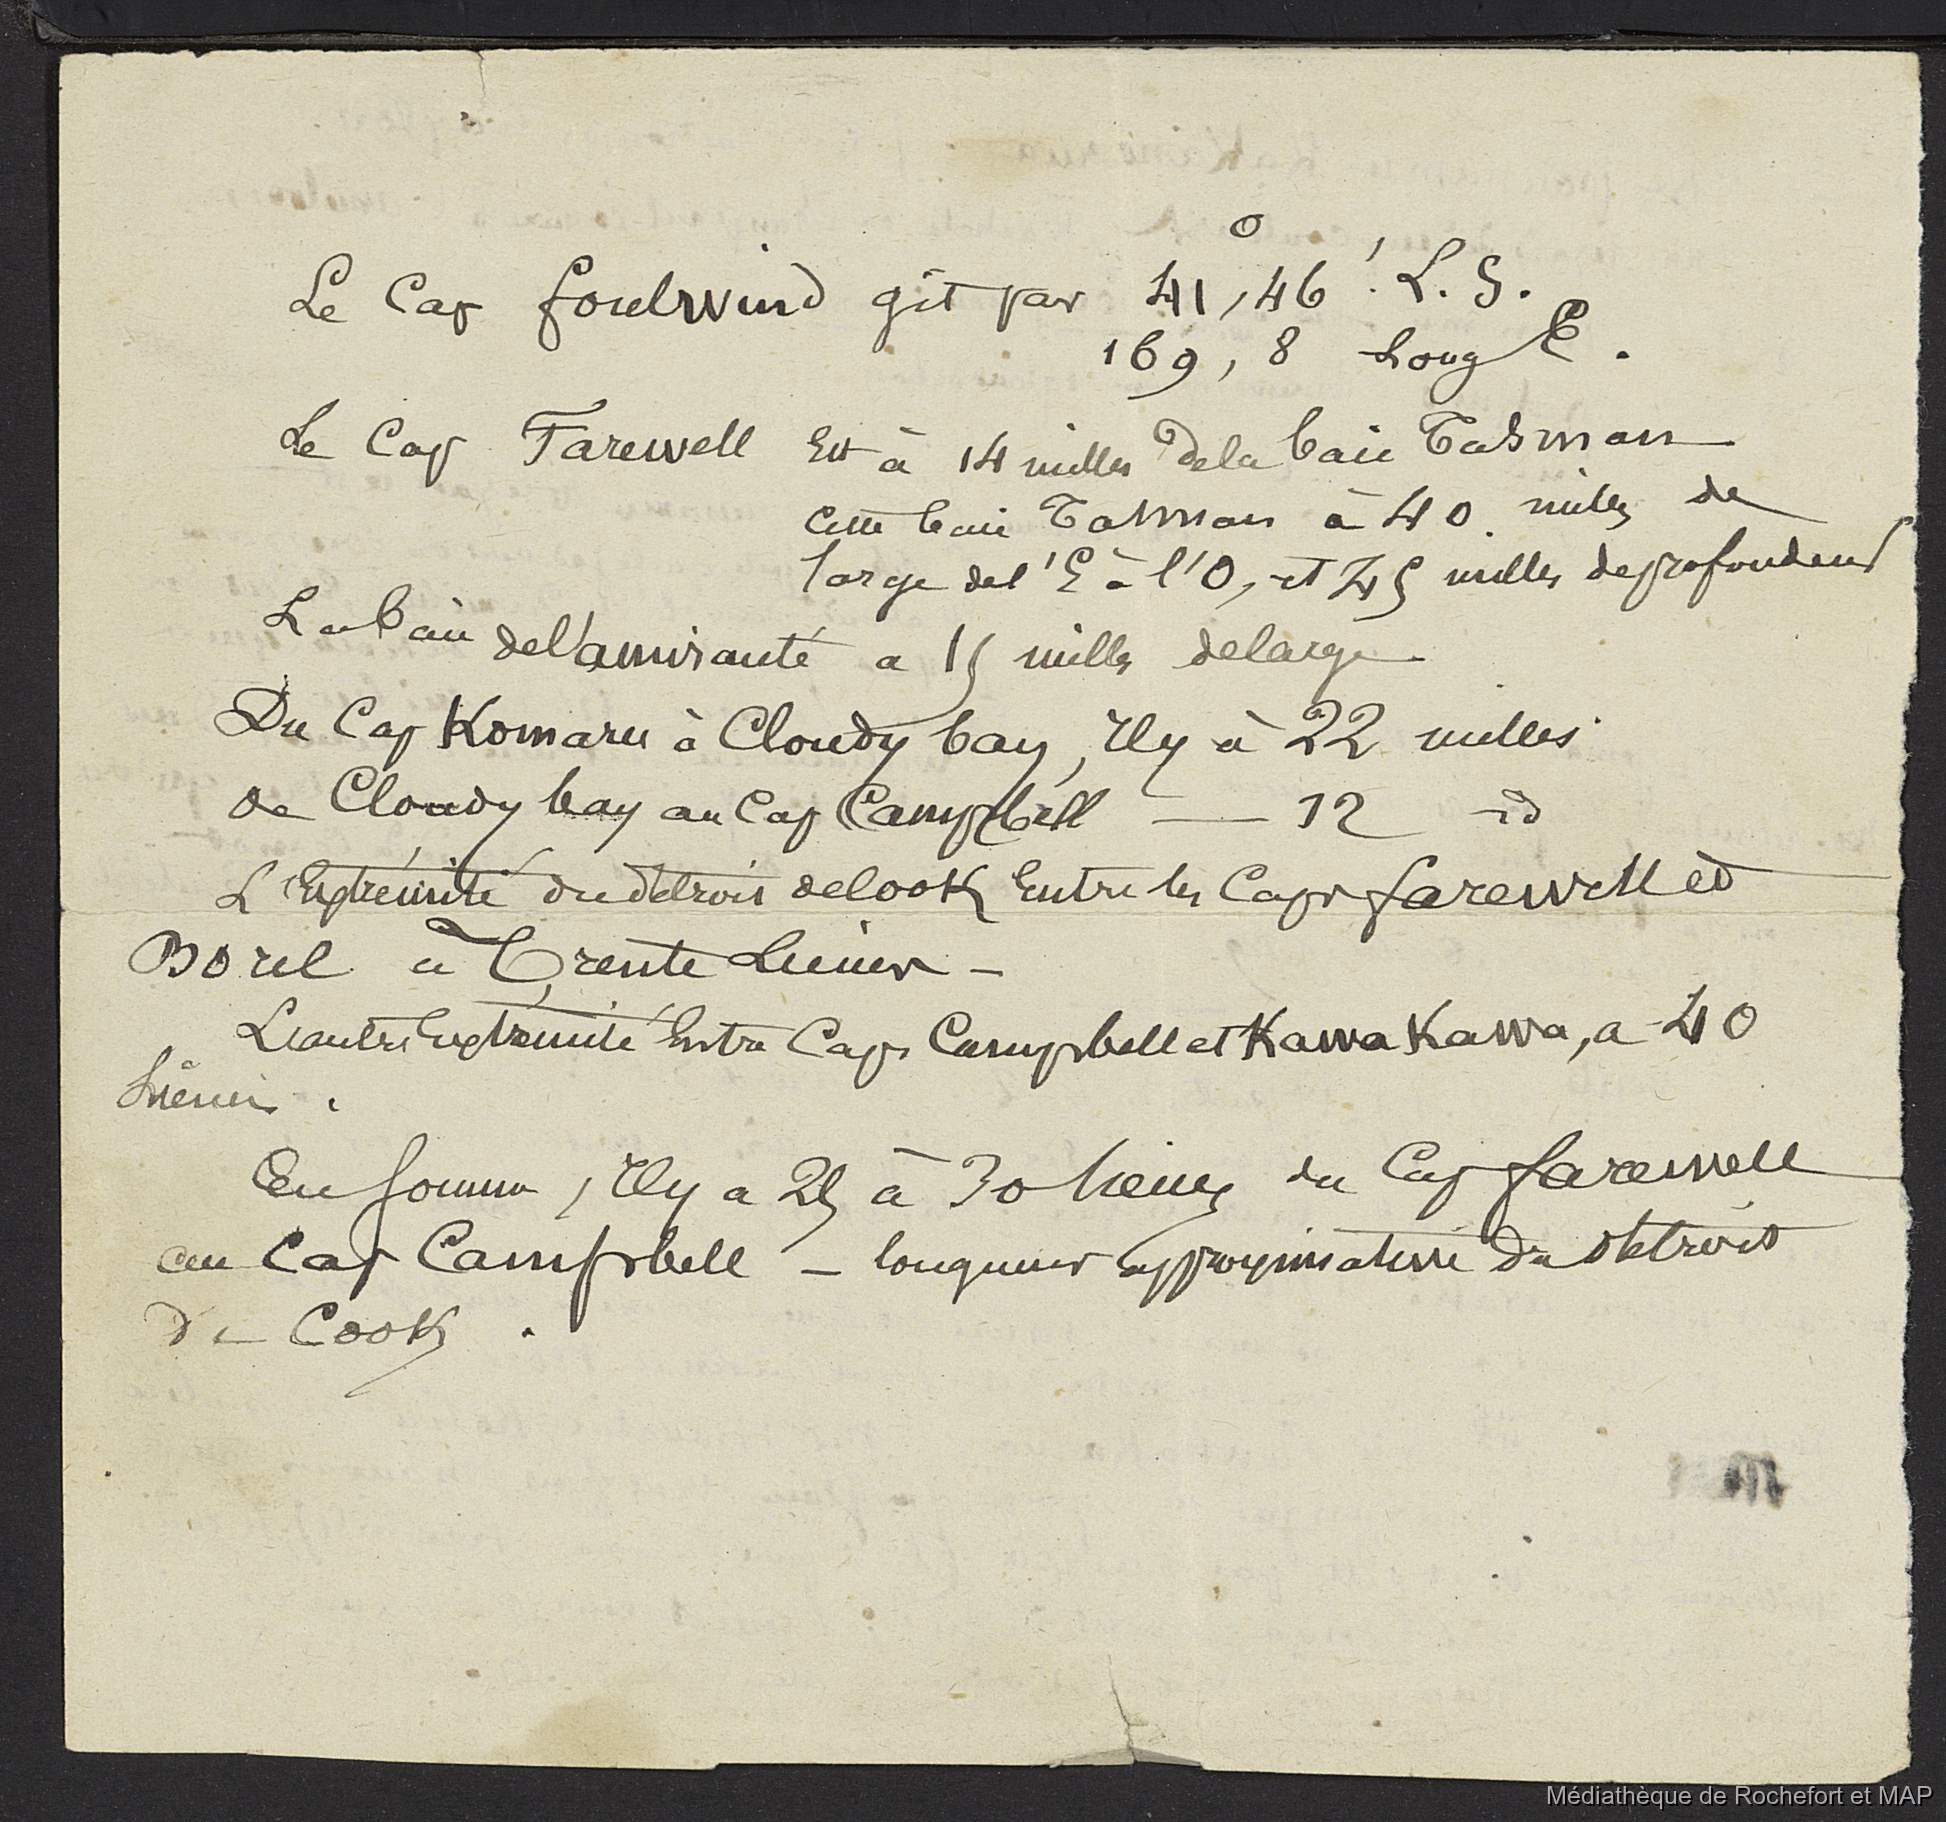 Le Cap foulwind gît par 41°,46'. L. S.
169, 8 Long E.
Le Cap Farewell Est à 14 milles de la baie Tasman
cette baie Tasman à 40 milles de
large de l'E à l'O, et 45 milles de profondeur
La baie de l'amirauté a 15 milles de large
Du Cap Komaru à Cloudy bay, Il y à 22 milles
de Cloudy bay au Cap Campbell — 12 id
L'Extrémité du détroit de Cook Entre les Caps farewell et
Borel a Trente Lieues —
L'autre Extrémité Entre Cap Campbell et Kawakawa, a 40
Lieues.
En somme, Il y a 25 à 30 lieues du Cap farewell
au Cap Campbell — longueur approximative du détroit
de Cook.
Médiathèque de Rochefort et MAP